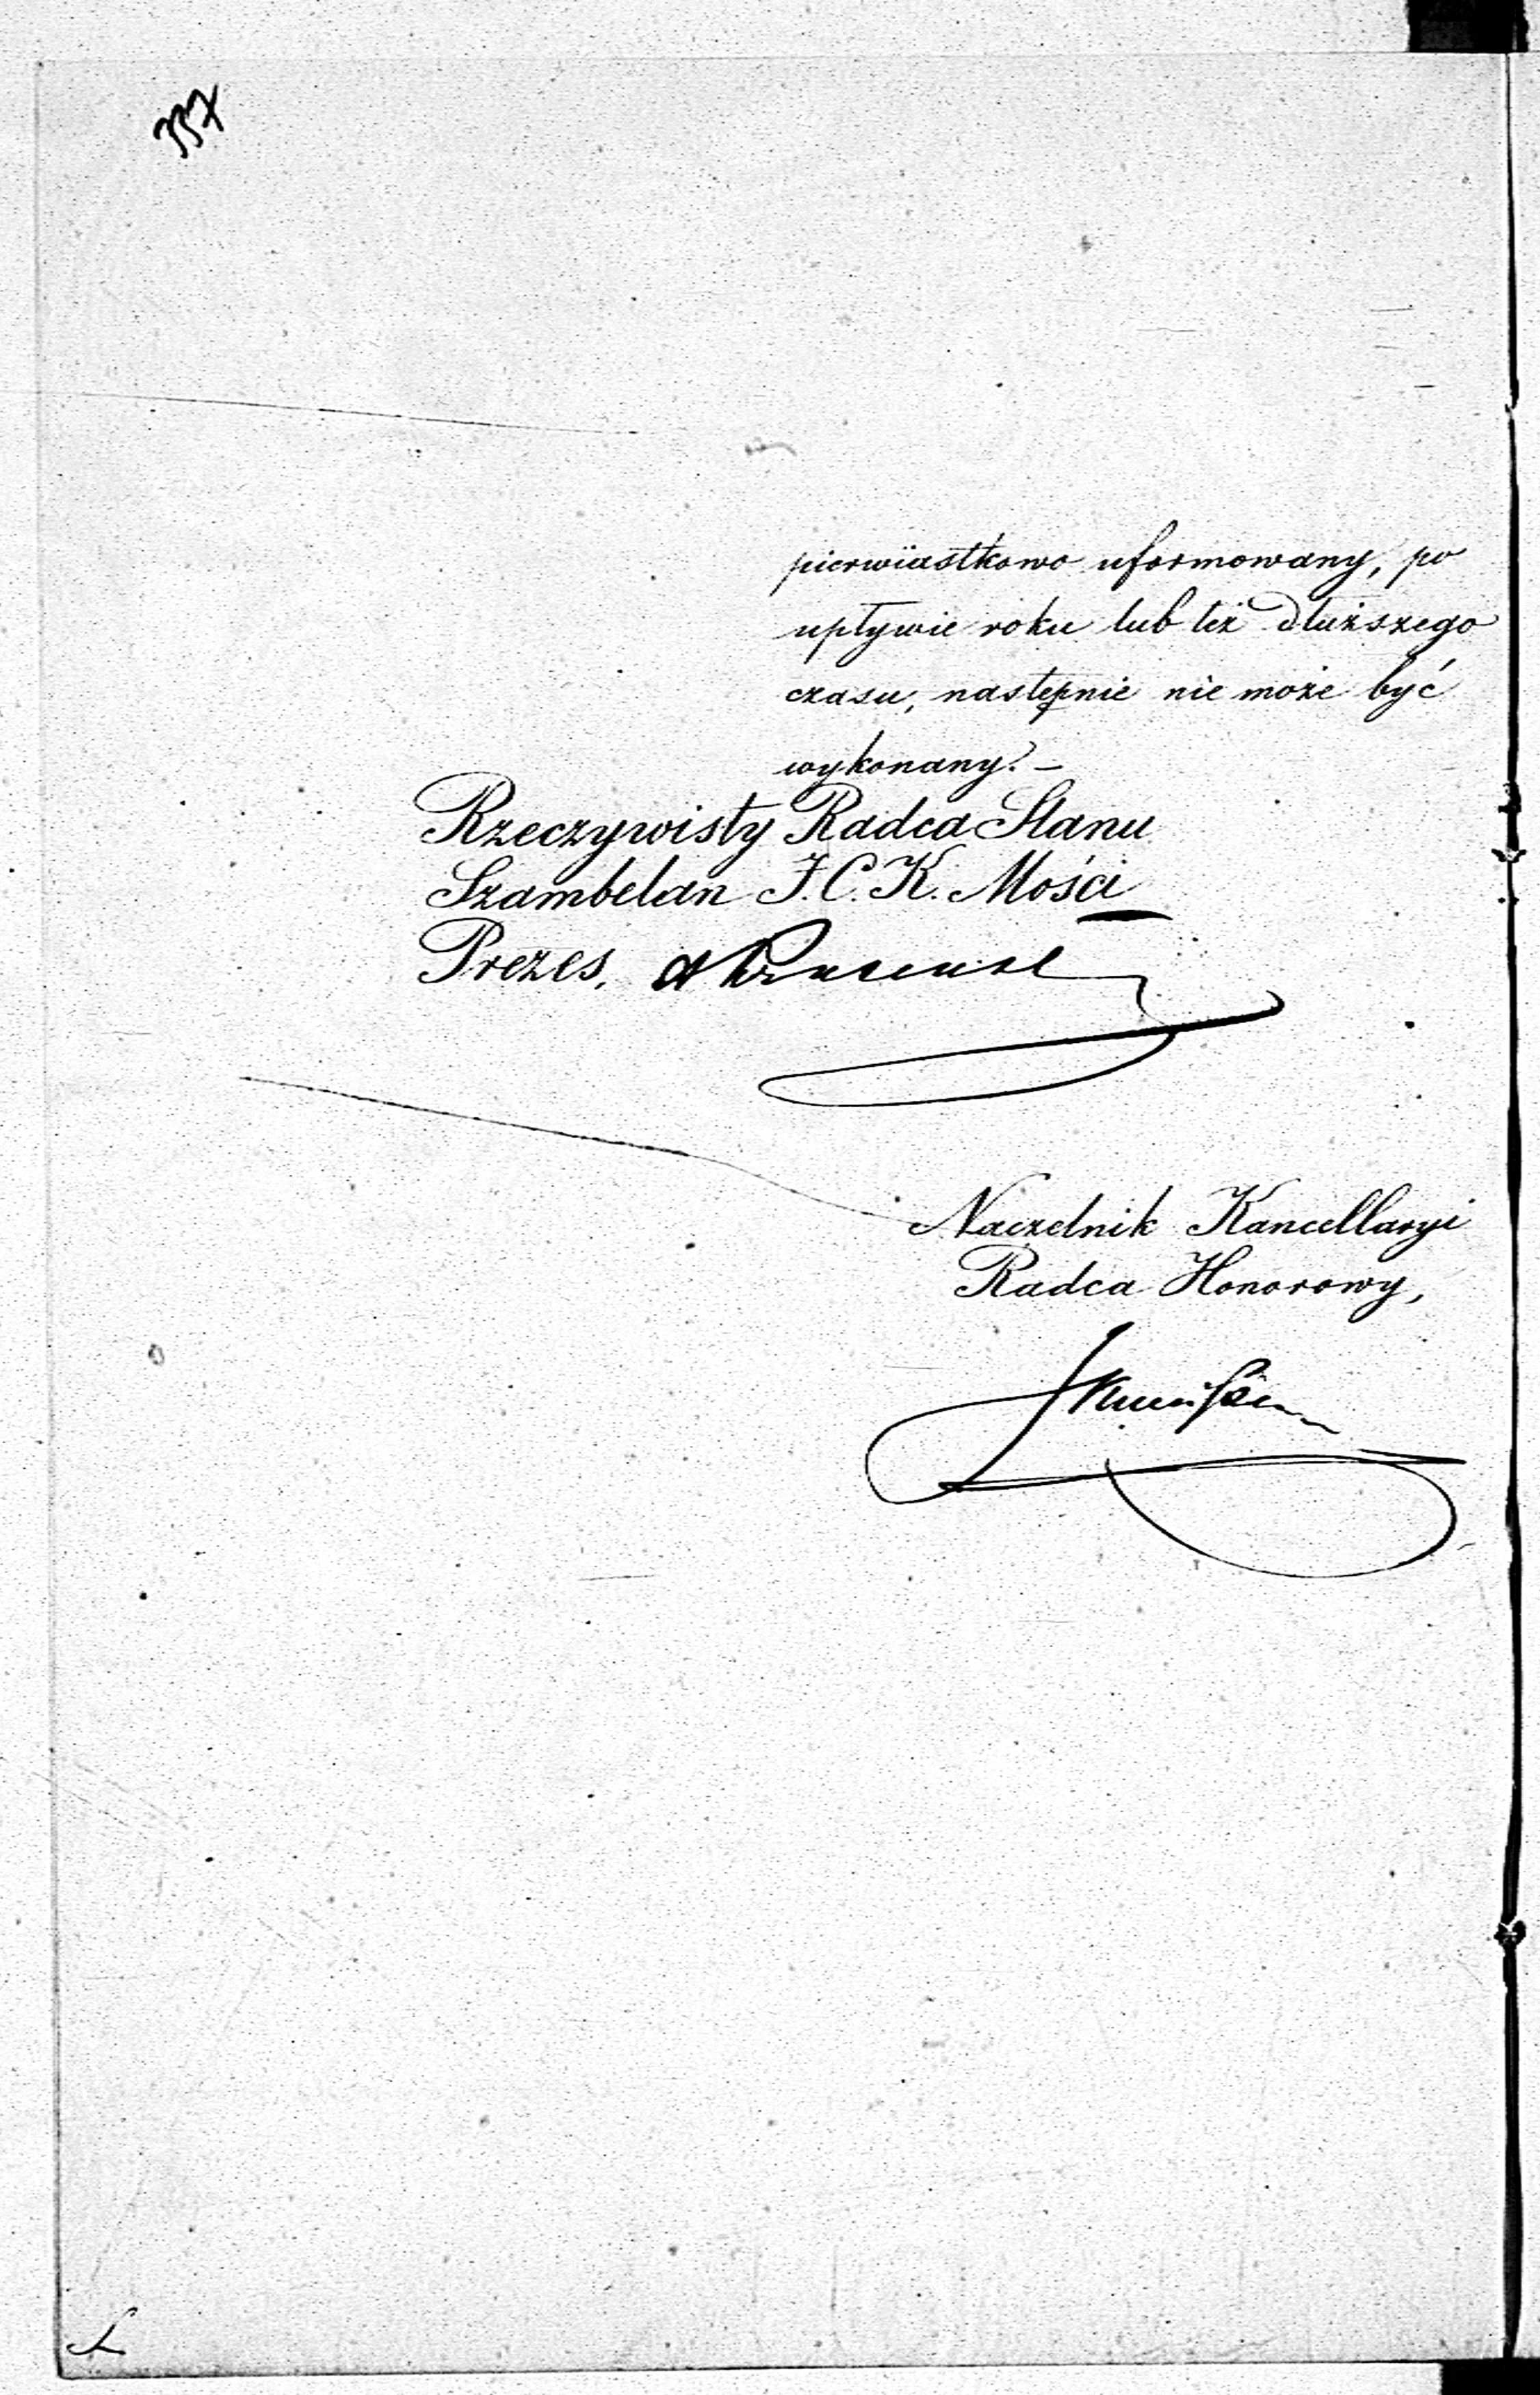 337
pierwiastkowo uformowany, po
upływie roku lub też dłuższego
czasu, następnie nie może być
wykonany. —
Rzeczywisty Radca Stanu
Szambelan J. C. K. Mości
Prezes,
Naczelnik Kancellaryi
Radca Honorowy,